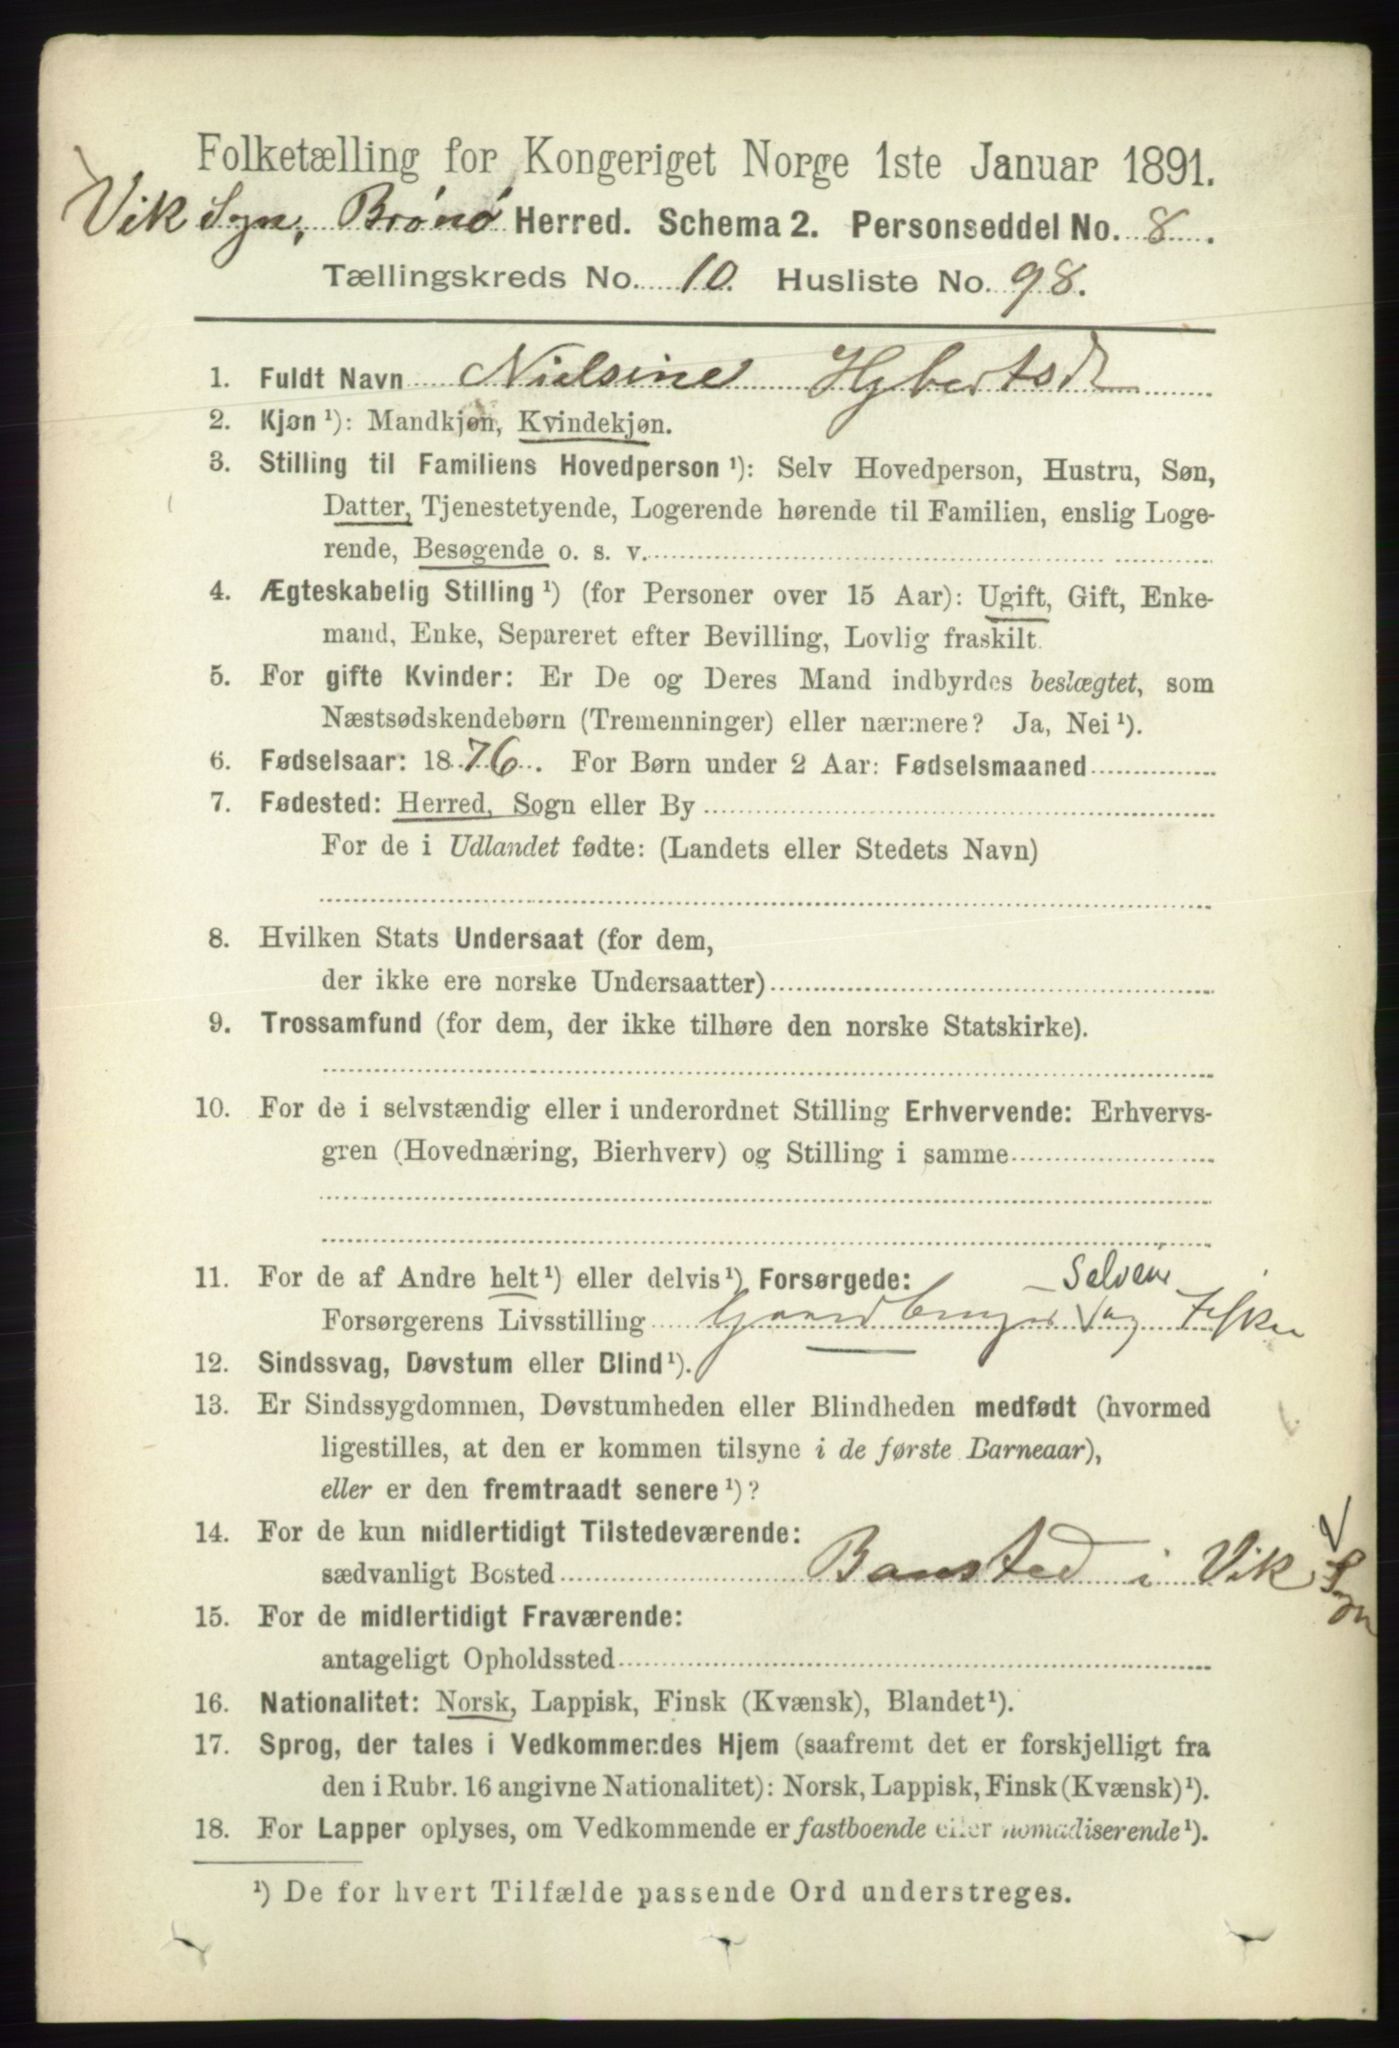 Folketælling for Kongeriget Norge 1ste Januar 1891.
Vik Sgn, Brønø Herred. Schema 2. Personseddel No. 8.
Tællingskreds No. 10. Husliste No. 98.
1. Fuldt Navn Nielsine Hybertsd
2. Kjøn ¹): Mandkjøn, Kvindekjøn.
3. Stilling til Familiens Hovedperson ¹): Selv Hovedperson, Hustru, Søn,
Datter, Tjenestetyende, Logerende hørende til Familien, enslig Loge-
rende, Besøgende o. s. v.
4. Ægteskabelig Stilling ¹) (for Personer over 15 Aar): Ugift, Gift, Enke-
mand, Enke, Separeret efter Bevilling, Lovlig fraskilt.
5. For gifte Kvinder: Er De og Deres Mand indbyrdes beslægtet, som
Næstsødskendebørn (Tremenninger) eller nærmere? Ja, Nei ¹).
6. Fødselsaar: 1876. For Børn under 2 Aar: Fødselsmaaned
7. Fødested: Herred, Sogn eller By
For de i Udlandet fødte: (Landets eller Stedets Navn)
8. Hvilken Stats Undersaat (for dem,
der ikke ere norske Undersaatter)
9. Trossamfund (for dem, der ikke tilhøre den norske Statskirke).
10. For de i selvstændig eller i underordnet Stilling Erhvervende: Erhvervs-
gren (Hovednæring, Bierhverv) og Stilling i samme
11. For de af Andre helt ¹) eller delvis ¹) Forsørgede: Selveier
Forsørgerens Livsstilling Gaardbruger og Fisker
12. Sindssvag, Døvstum eller Blind ¹).
13. Er Sindssygdommen, Døvstumheden eller Blindheden medfødt (hvormed
ligestilles, at den er kommen tilsyne i de første Barneaar),
eller er den fremtraadt senere ¹)?
14. For de kun midlertidigt Tilstedeværende:
sædvanligt Bosted Bansted i Vik Sgn
15. For de midlertidigt Fraværende:
antageligt Opholdssted
16. Nationalitet: Norsk, Lappisk, Finsk (Kvænsk), Blandet ¹).
17. Sprog, der tales i Vedkommendes Hjem (saafremt det er forskjelligt fra
den i Rubr. 16 angivne Nationalitet): Norsk, Lappisk, Finsk (Kvænsk) ¹).
18. For Lapper oplyses, om Vedkommende er fastboende eller nomadiserende ¹).
¹) De for hvert Tilfælde passende Ord understreges.